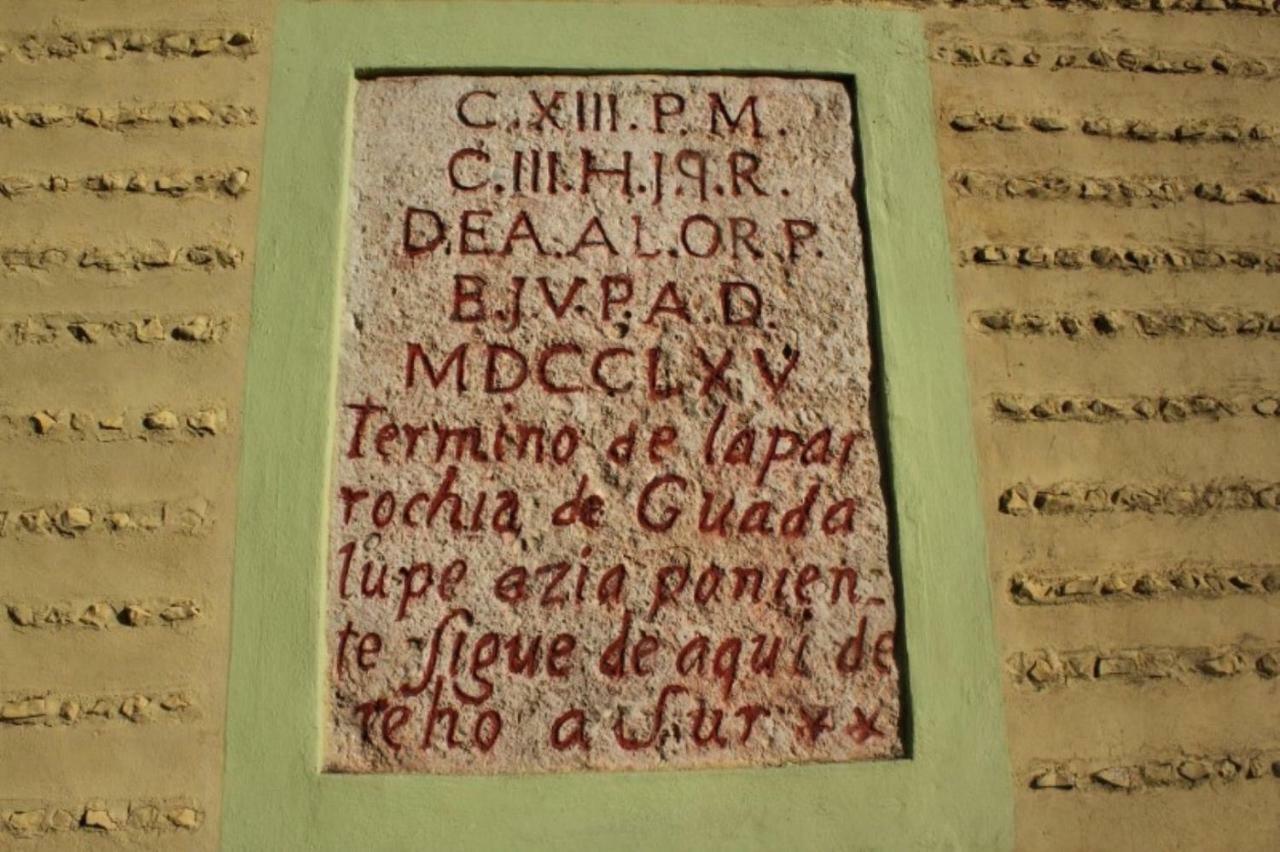 C.XIII.P.M.
C.III.H.J.q.R.
D.E.A.A L.OR.P.
B.J.V.P.A.D.
MDCCLXV
Termino de lapar
rochia de Guada
lupe azia ponien-
te ſigue de aqui de
reho a Sur **